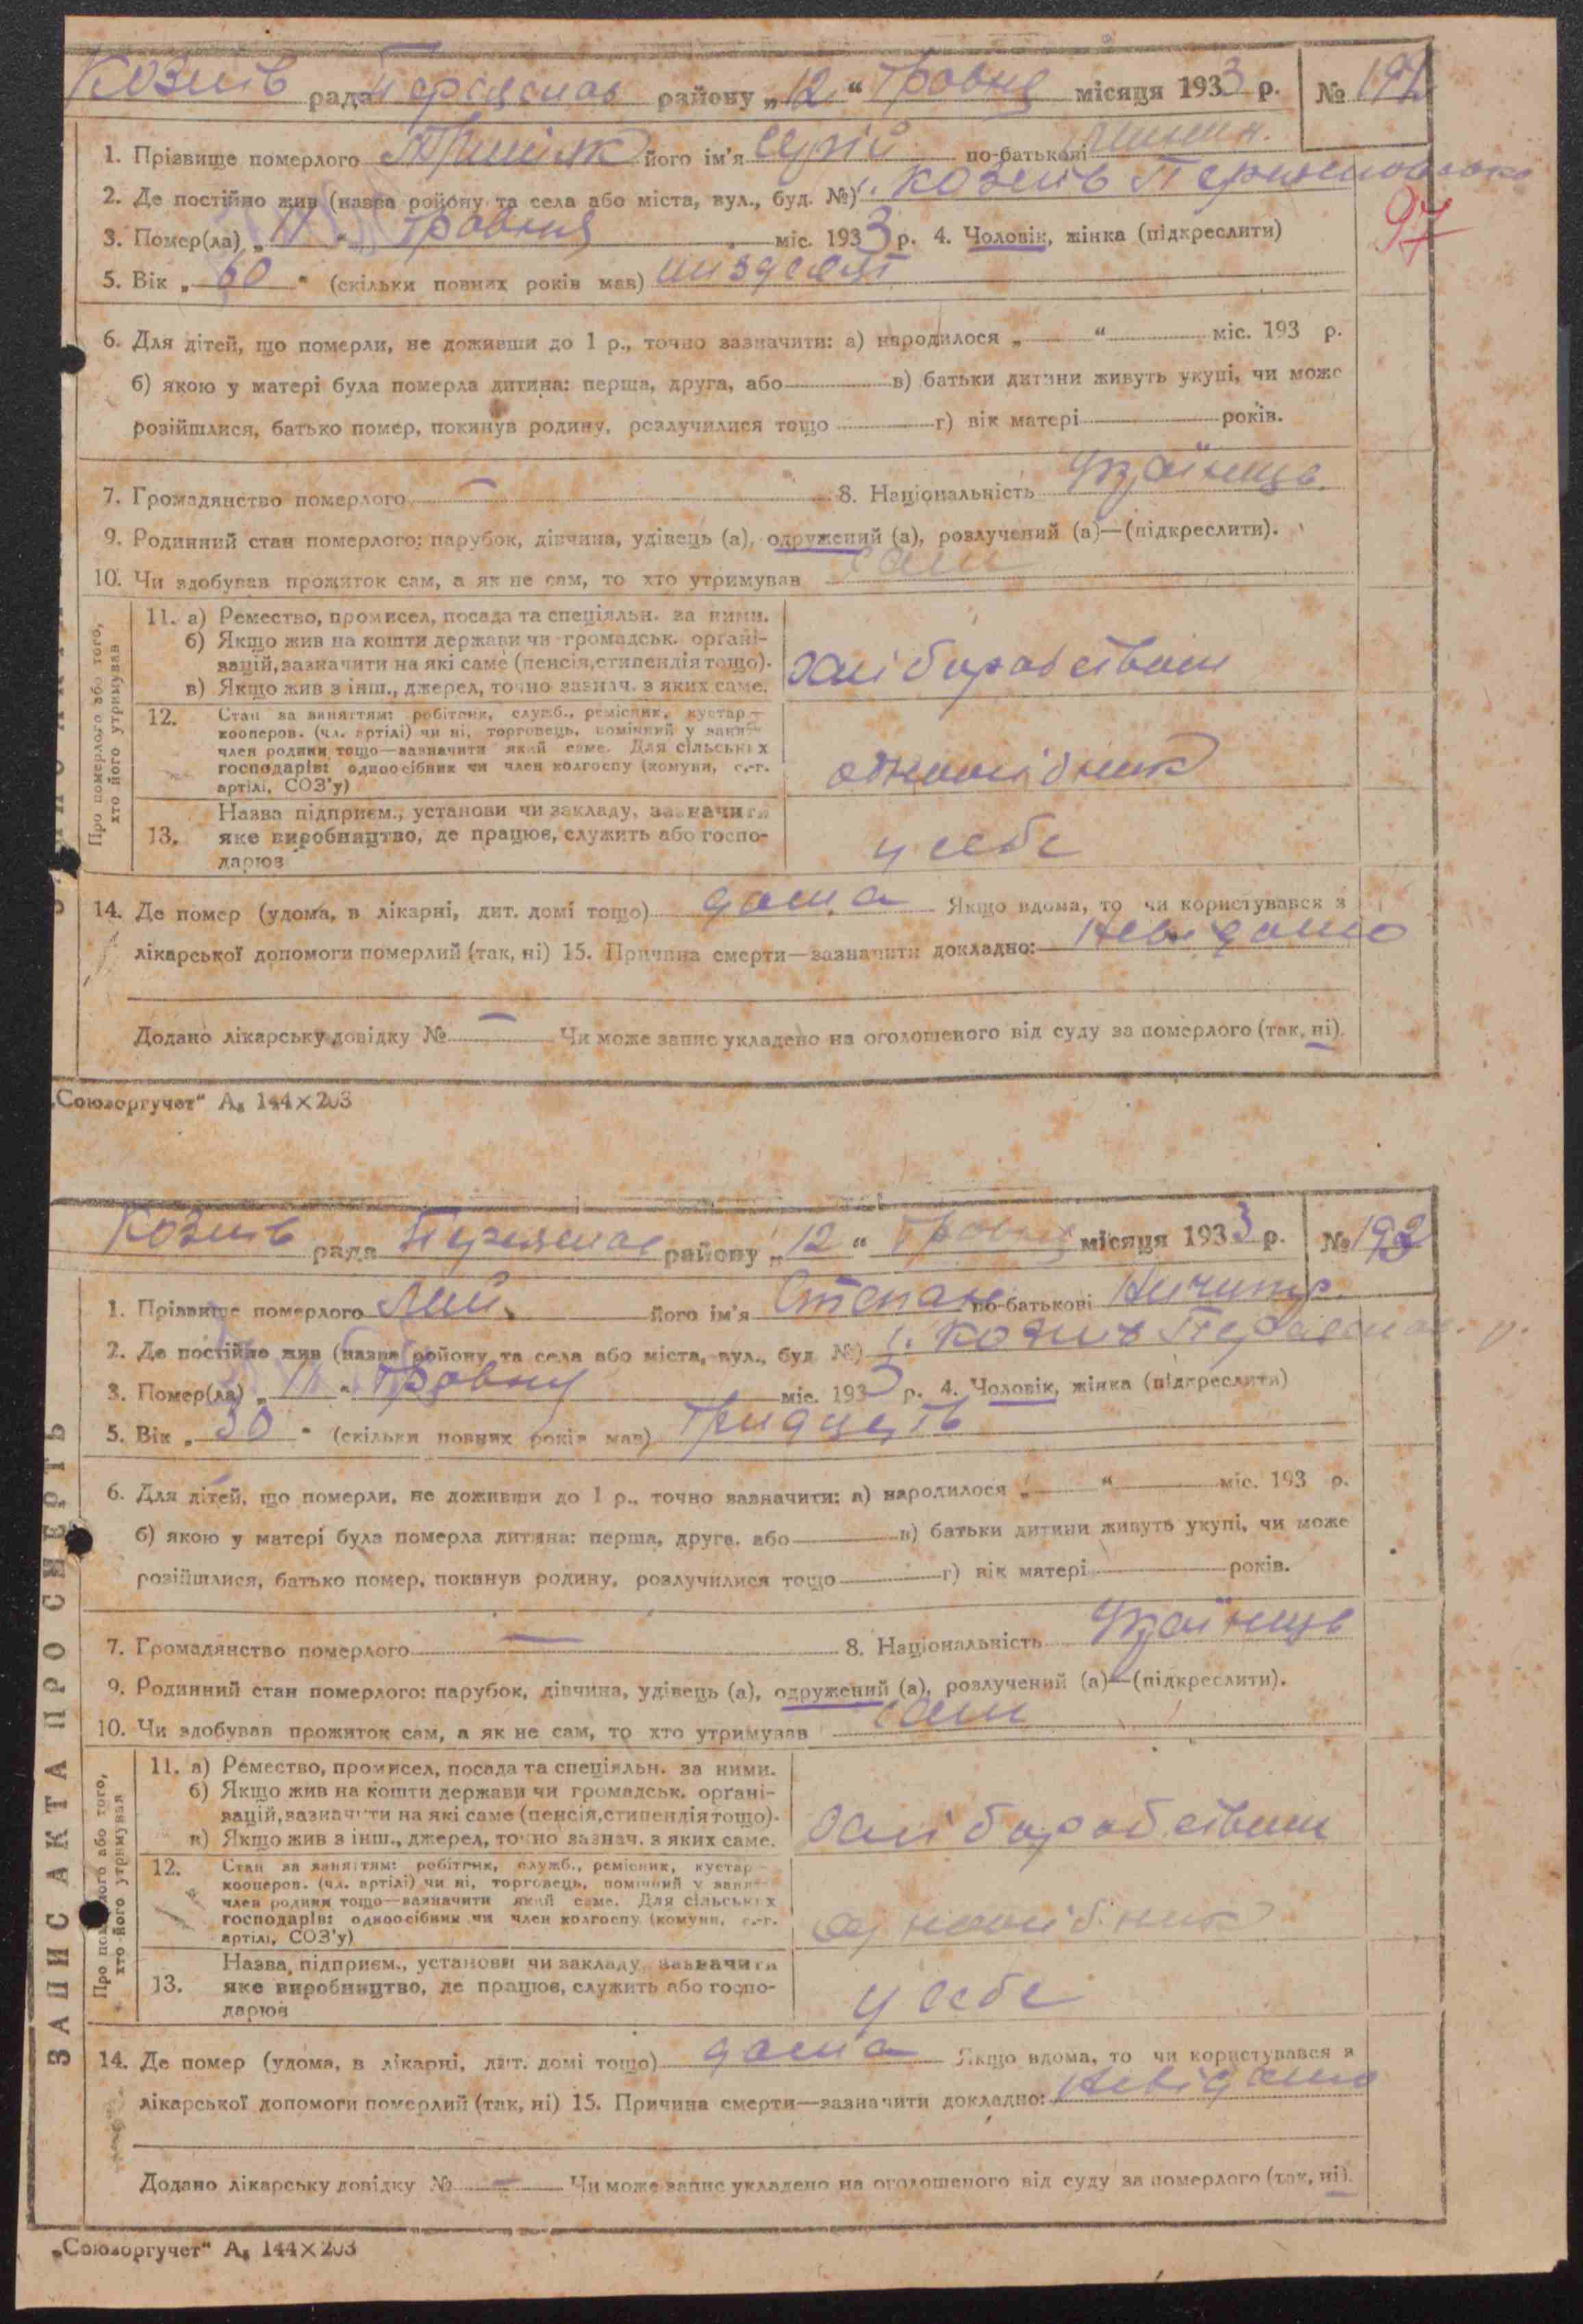 Козлів рада Переяслав району „12“ Травня місяця 1933 р. №
1. Прізвище померлого його ім'я Сергій по-батькові
97
2. Де постійно жив (назва району та села або міста, вул., буд. №) с. Козлів
3. Помер(ла) „11“ Травня міс. 1933 р. 4. Чоловік, жінка (підкреслити)
5. Вік „60“ (скільки повних років мав) шиздесят
6. Для дітей, що померли, не доживши до 1 р., точно зазначити: а) народилося „ “ міс. 193 р.
б) якою у матері була померла дитина: перша, друга, або в) батьки дитини живуть укупі, чи може
розійшлися, батько помер, покинув родину, розлучилися тощо г) вік матері років.
7. Громадянство померлого — 8. Національність Українець
9. Родинний стан померлого: парубок, дівчина, удівець (а), одружений (а), розлучений (а)—(підкреслити).
10. Чи здобував прожиток сам, а як не сам, то хто утримував сам
Про померлого або того, хто його утримував
11. а) Ремество, промисел, посада та спеціяльн. за ними.
б) Якщо жив на кошти держави чи громадськ. органі-
зацій, зазначити на які саме (пенсія, стипендія тощо).
в) Якщо жив з інш., джерел, точно зазнач. з яких саме.
хліборобством
12. Стан за заняттям: робітник, служб., ремісник, кустар—
кооперов. (чл. артілі) чи ні, торговець, помічний у занят—
член родини тощо—зазначити який саме. Для сільських
господарів: одноосібник чи член колгоспу (комуни, с.-г.
артілі, СОЗ'у)
одноосібник
13. Назва підприєм., установи чи закладу, зазначити
яке виробництво, де працює, служить або госпо-
дарює
у себе
14. Де помер (удома, в лікарні, дит. домі тощо) дома Якщо вдома, то чи користувався з
лікарської допомоги померлий (так, ні) 15. Причина смерти—зазначити докладно: невідомо
Додано лікарську довідку № — Чи може запис укладено на оголошеного від суду за померлого (так, ні).
„Союзоргучет“ А₅ 144×203
Козлів рада Переяслав району „12“ Травня місяця 1933 р. № 192
1. Прізвище померлого його ім'я Степан по-батькові Ничипр.
2. Де постійно жив (назва району та села або міста, вул., буд. №) с. Козлів Переяслав. р.
3. Помер(ла) „11“ Травня міс. 1933 р. 4. Чоловік, жінка (підкреслити)
5. Вік „30“ (скільки повних років мав) тридцять
6. Для дітей, що померли, не доживши до 1 р., точно зазначити: а) народилося „ “ міс. 193 р.
б) якою у матері була померла дитина: перша, друга, або в) батьки дитини живуть укупі, чи може
розійшлися, батько помер, покинув родину, розлучилися тощо г) вік матері років.
7. Громадянство померлого — 8. Національність Українець
9. Родинний стан померлого: парубок, дівчина, удівець (а), одружений (а), розлучений (а)—(підкреслити).
10. Чи здобував прожиток сам, а як не сам, то хто утримував сам
ЗАПИС АКТА ПРО СМЕРТЬ
Про померлого або того, хто його утримував
11. а) Ремество, промисел, посада та спеціяльн. за ними.
б) Якщо жив на кошти держави чи громадськ. органі-
зацій, зазначити на які саме (пенсія, стипендія тощо).
в) Якщо жив з інш., джерел, точно зазнач. з яких саме.
хліборобством
12. Стан за заняттям: робітник, служб., ремісник, кустар—
кооперов. (чл. артілі) чи ні, торговець, помічний у занят—
член родини тощо—зазначити який саме. Для сільських
господарів: одноосібник чи член колгоспу (комуни, с.-г.
артілі, СОЗ'у)
одноосібник
13. Назва, підприєм., установи чи закладу, зазначити
яке виробництво, де працює, служить або госпо-
дарює
у себе
14. Де помер (удома, в лікарні, дит. домі тощо) дома Якщо вдома, то чи користувався з
лікарської допомоги померлий (так, ні) 15. Причина смерти—зазначити докладно: невідомо
Додано лікарську довідку № — Чи може запис укладено на оголошеного від суду за померлого (так, ні).
„Союзоргучет“ А₅ 144×203